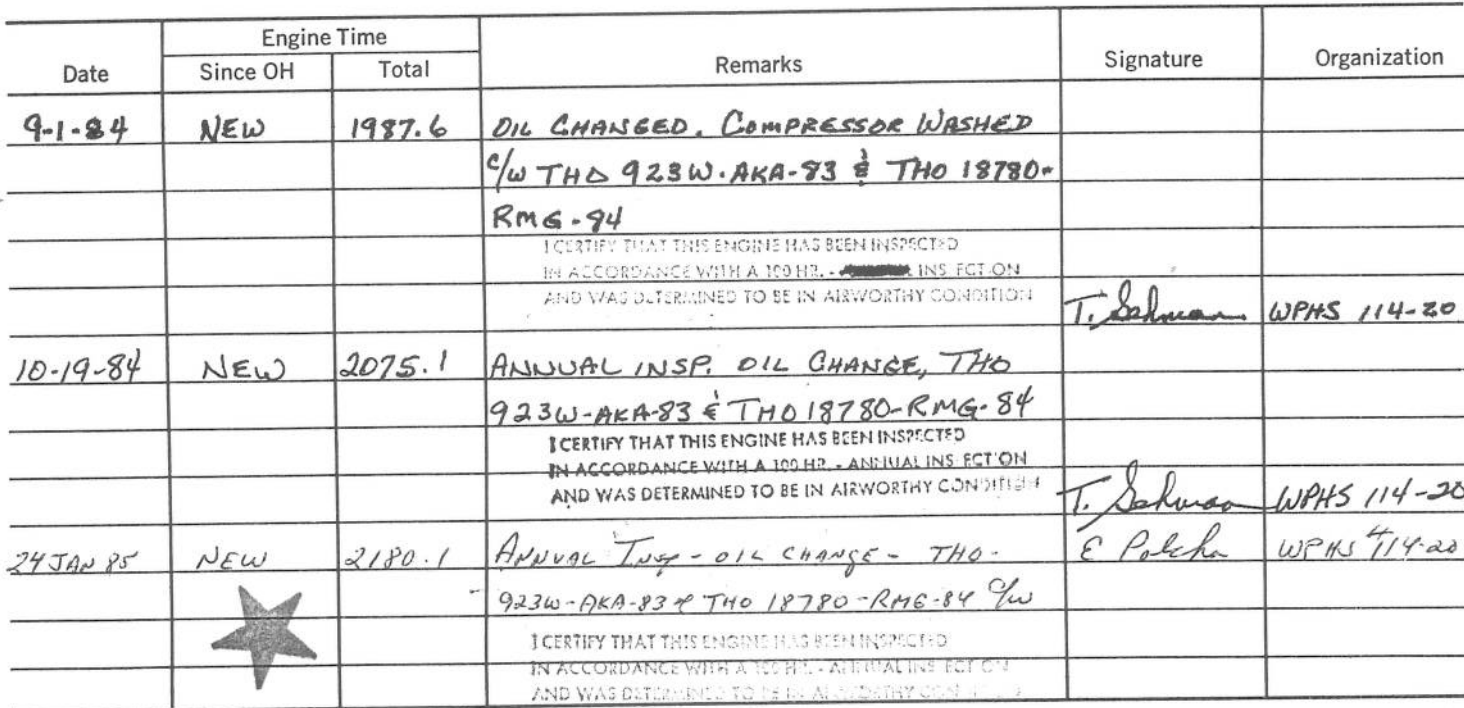 Engine Time
Date Since OH Total Remarks Signature Organization
9-1-84 NEW 1987.6 OIL CHANGED. COMPRESSOR WASHED
c/w THO 923W-AKA-83 & THO 18780-
RMG-84
I CERTIFY THAT THIS ENGINE HAS BEEN INSPECTED
IN ACCORDANCE WITH A 100 HR. - INSPECTION
AND WAS DETERMINED TO BE IN AIRWORTHY CONDITION
T. WPHS 114-20
10-19-84 NEW 2075.1 ANNUAL INSP. OIL CHANGE, THO
923W-AKA-83 & THO 18780-RMG-84
I CERTIFY THAT THIS ENGINE HAS BEEN INSPECTED
IN ACCORDANCE WITH A 100 HR. - ANNUAL INSPECTION
AND WAS DETERMINED TO BE IN AIRWORTHY CONDITION
T. WPHS 114-20
24 JAN 85 NEW 2180.1 ANNUAL INSP - OIL CHANGE - THO - E Polcha WPHS #114-20
923W-AKA-83 & THO 18780-RMG-84 c/w
I CERTIFY THAT THIS ENGINE HAS BEEN INSPECTED
IN ACCORDANCE WITH A 100 HR. - ANNUAL INSPECTION
AND WAS DETERMINED TO BE IN AIRWORTHY CONDITION